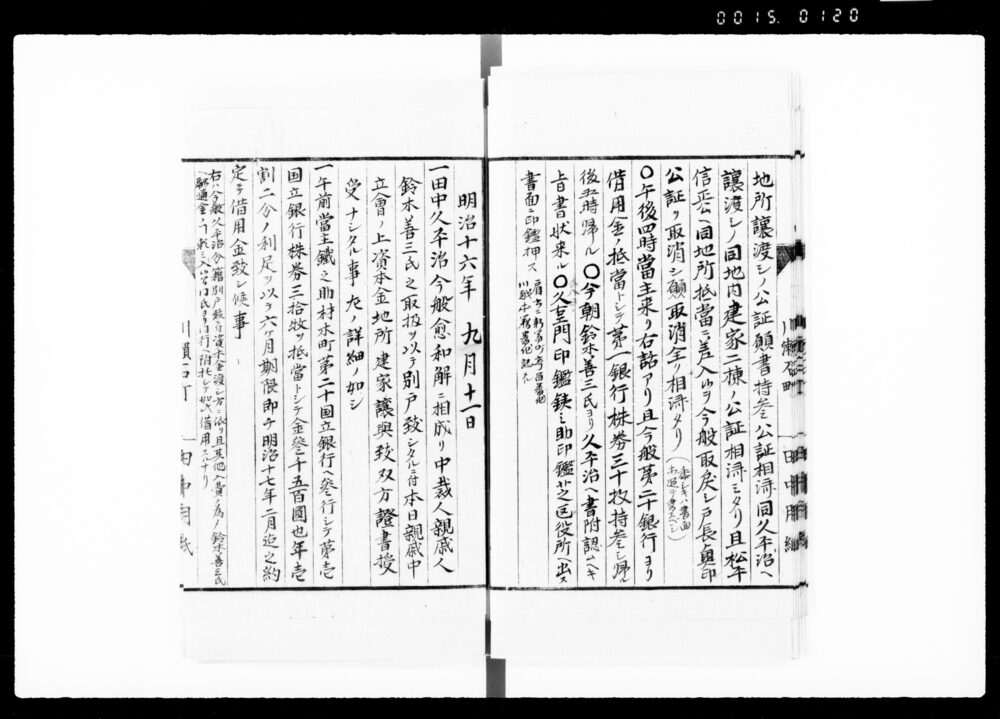 0015. 0120
地所讓渡シノ公証願書持参公証相済同久平治ヘ
讓渡シノ同地内建家二棟ノ公証相済ミタリ且松平
信正公ヘ同地所抵當ニ差入ルヲ今般取戻シ戸長奥印
公証ヲ取消シ願取消全ク相済タリ
〇午後四時當主来リ右話アリ且今般第二十銀行ヨリ
借用金ノ抵當トシテ第一銀行株券三十枚持参シ帰ル
後五時帰ル〇今朝鈴木善三氏ヨリ久平治ヘ書附認ムヘキ
旨書状来ル〇久右衛門印鑑鉄之助印鑑芝区役所ヘ出ス
書面ニ印鑑押ス
明治十六年 九月十一日
一田中久平治今般愈和解ニ相成リ中裁人親戚人
鈴木善三氏之取扱ヲ以テ別戸致シタルニ付本日親戚中
立會ノ上資本金地所建家讓與致双方證書授
受ナシタル事左ノ詳細ノ如シ
一午前當主鐵之助村木町第二十国立銀行ヘ参行シテ第壱
国立銀行株券三拾枚抵當トシテ金参千五百圓也年壱
割二分ノ利足ヲ以テ六ヶ月期限即チ明治十七年二月迄之約
定ニテ借用金致シ候事
右ハ今般久平治分籍別戸致ニ付資本金渡シ方ニ依リ且其他入費ノ為ノ鈴木善三氏
川瀬石町
田中用紙